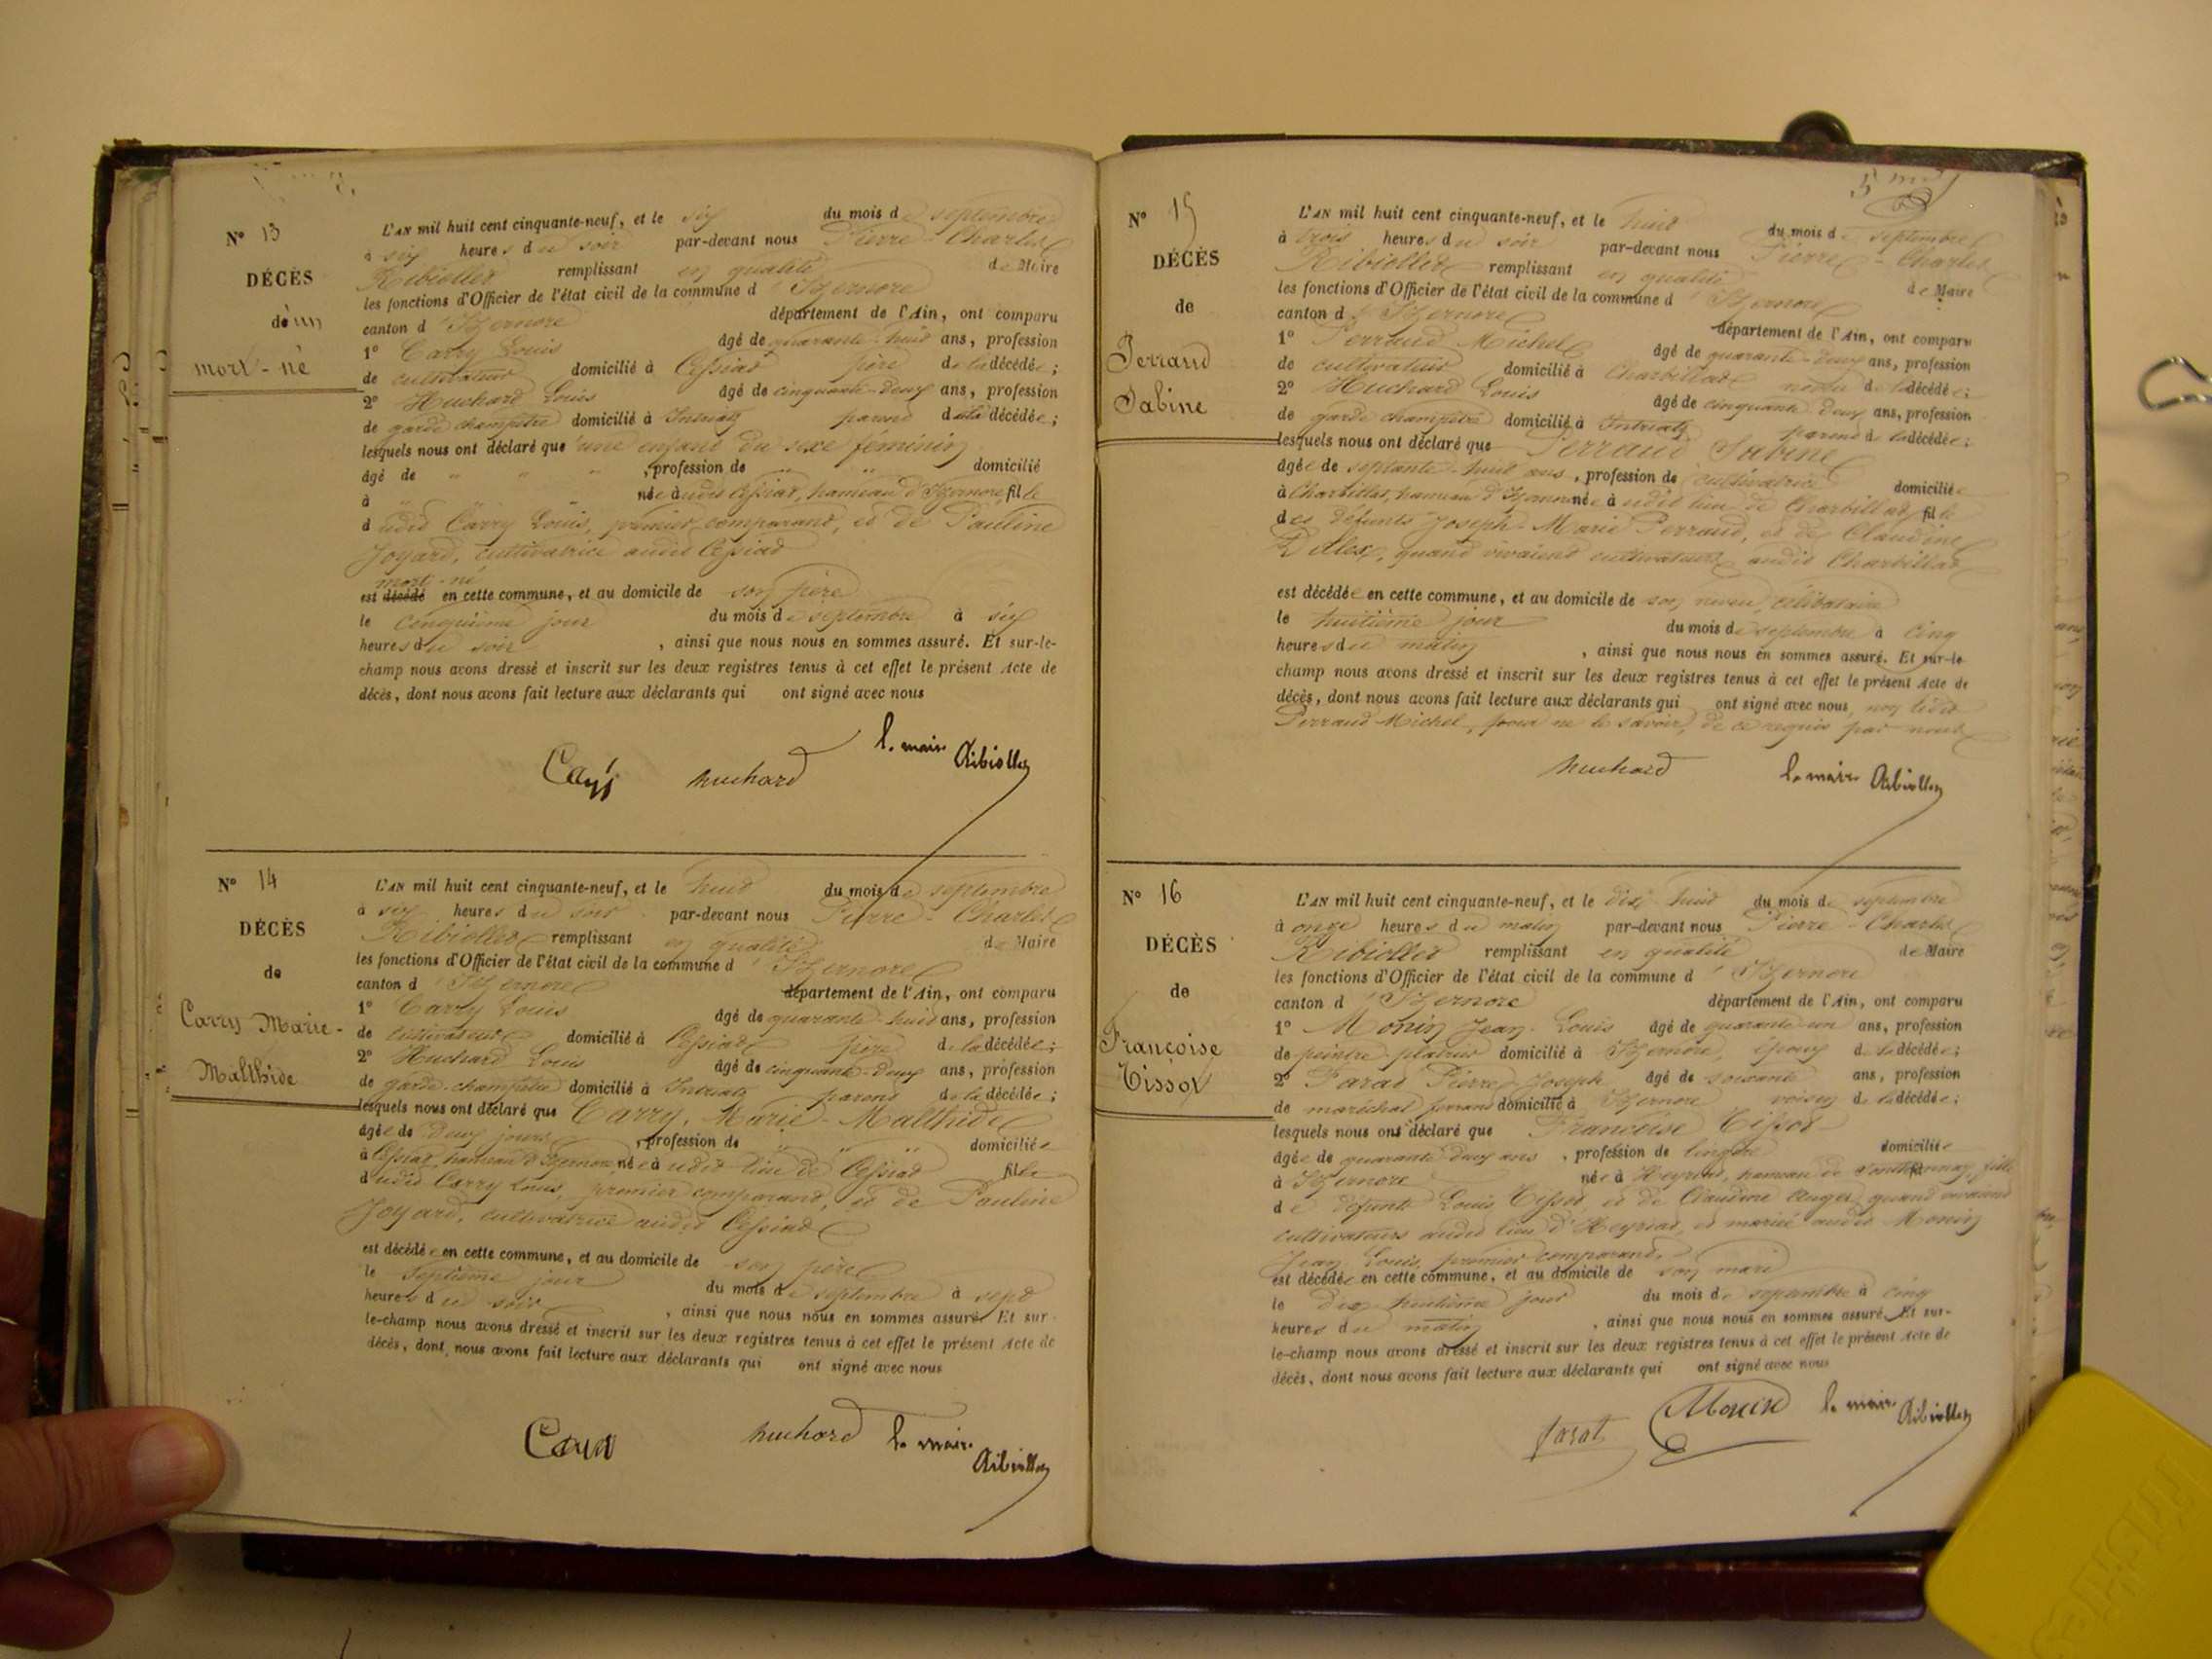 N° 13
DÉCÈS
de un
mort-né
L'AN mil huit cent cinquante-neuf, et le six du mois de septembre
à six heures du soir par-devant nous Pierre-Charles
Ribiollet remplissant en qualité de Maire
les fonctions d'Officier de l'état civil de la commune d'Izernore
canton d'Izernore département de l'Ain, ont comparu
1° Carry Louis âgé de quarante-huit ans, profession
de cultivateur domicilié à Cessiat père de la décédée;
2° Huchard Louis âgé de cinquante-deux ans, profession
de garde champêtre domicilié à Intriatz parent de la décédée;
lesquels nous ont déclaré que une enfant du sexe féminin
âgé de " " " , profession de " " domicilié
à " " née audit Cessiat, hameau d'Izernore fille
dudit Carry Louis, premier comparant, et de Pauline
Joyard, cultivatrice audit Cessiat
mort-né
est décédé en cette commune, et au domicile de son père
le cinquième jour du mois de septembre à six
heures du soir , ainsi que nous nous en sommes assuré. Et sur-le-
champ nous avons dressé et inscrit sur les deux registres tenus à cet effet le présent Acte de
décès, dont nous avons fait lecture aux déclarants qui ont signé avec nous
huchard le maire Ribiollet
N° 14
DÉCÈS
de
Carry Marie-
Malthide
L'AN mil huit cent cinquante-neuf, et le huit du mois de septembre
à six heures du soir par-devant nous Pierre-Charles
Ribiollet remplissant en qualité de Maire
les fonctions d'Officier de l'état civil de la commune d'Izernore
canton d'Izernore département de l'Ain, ont comparu
1° Carry Louis âgé de quarante-huit ans, profession
de cultivateur domicilié à Cessiat père de la décédée;
2° Huchard Louis âgé de cinquante-deux ans, profession
de garde-champêtre domicilié à Intriatz parent de la décédée;
lesquels nous ont déclaré que Carry, Marie-Malthide
âgée de deux jours , profession de " " domiciliée
à Cessiat, hameau d'Izernore, née à udit lieu de Cessiat fille
dudit Carry Louis, premier comparant, et de Pauline
Joyard, cultivatrice audit Cessiat
est décédée en cette commune, et au domicile de son père
le septième jour du mois de septembre à sept
heures du soir , ainsi que nous nous en sommes assuré. Et sur-
le-champ nous avons dressé et inscrit sur les deux registres tenus à cet effet le présent Acte de
décès, dont nous avons fait lecture aux déclarants qui ont signé avec nous
huchard le maire
Ribiollet
N° 15
DÉCÈS
de
Perraud
Sabine
L'AN mil huit cent cinquante-neuf, et le huit du mois de septembre
à trois heures du soir par-devant nous Pierre-Charles
Ribiollet remplissant en qualité de Maire
les fonctions d'Officier de l'état civil de la commune d'Izernore
canton d'Izernore département de l'Ain, ont comparu
1° Perraud Michel âgé de quarante-deux ans, profession
de cultivateur domicilié à Charbillat neveu de la décédée;
2° Huchard Louis âgé de cinquante-deux ans, profession
de garde champêtre domicilié à Intriatz parent de la décédée;
lesquels nous ont déclaré que Perraud Sabine
âgée de septante-huit ans , profession de cultivatrice domiciliée
à Charbillat, hameau d'Izernore née à udit lieu de Charbillat, fille
des défunts Joseph-Marie Perraud, et de Claudine
quand vivaient cultivateurs audit Charbillat
est décédée en cette commune, et au domicile de son neveu, célibataire
le huitième jour du mois de septembre à cinq
heures du matin , ainsi que nous nous en sommes assuré. Et sur-le
champ nous avons dressé et inscrit sur les deux registres tenus à cet effet le présent Acte de
décès, dont nous avons fait lecture aux déclarants qui ont signé avec nous, non ledit
Perraud Michel, pour ne le savoir, de ce requis par nous
huchard le maire Ribiollet
N° 16
DÉCÈS
de
Françoise
Tissot
L'AN mil huit cent cinquante-neuf, et le dix-huit du mois de septembre
à onze heures du matin par-devant nous Pierre-Charles
Ribiollet remplissant en qualité de Maire
les fonctions d'Officier de l'état civil de la commune d'Izernore
canton d'Izernore département de l'Ain, ont comparu
1° Monin Jean-Louis âgé de quarante-un ans, profession
de peintre-platrier domicilié à Izernore, époux de la décédée;
2° Farat Pierre Joseph âgé de soixante ans, profession
de maréchal ferrant domicilié à Izernore voisin de la décédée;
lesquels nous ont déclaré que Françoise Tissot
âgée de quarante-deux ans , profession de lingère domiciliée
à Izernore née à Heyriat, hameau de Sonthonnax, fille
de défunts Louis Tissot, et de Claudine Auger, quand vivaient
cultivateurs audit lieu d'Heyriat, et mariée audit Monin
Jean Louis, premier comparant,
est décédée en cette commune, et au domicile de son mari
le dix-huitième jour du mois de septembre à cinq
heures du matin , ainsi que nous nous en sommes assuré. Et sur-
le-champ nous avons dressé et inscrit sur les deux registres tenus à cet effet le présent Acte de
décès, dont nous avons fait lecture aux déclarants qui ont signé avec nous
farat Monin le maire Ribiollet